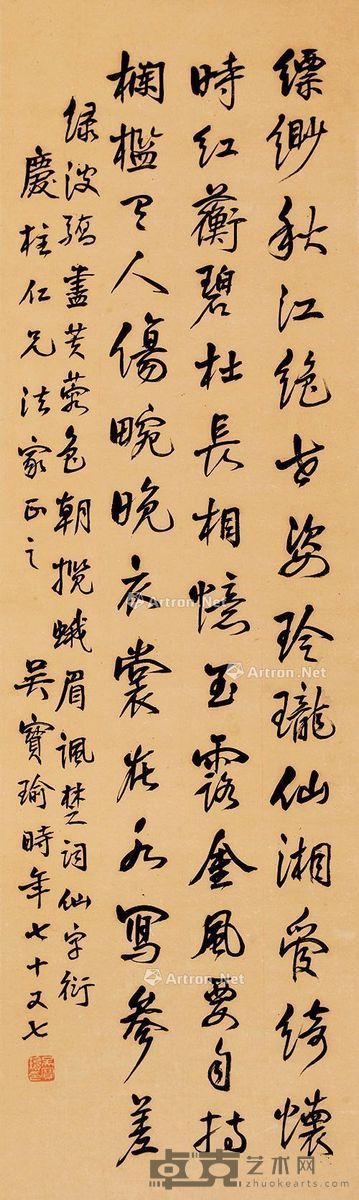 縹緲秋江絕世姿玲瓏仙湘愛綺懷
時紅蘅碧杜長相憶玉露金風要自持
欄檻人傷畹晚衣裳在水寫參差
綠波盡芙蓉色朝攬蛾眉諷楚詞仙字衍
慶柱仁兄法家正之 吳寶瑜時年七十又七
Artron.Net
Artron.Net
Artron.Net
Artron.Net
Artron.Net
卓克艺术网
zhuokearts.com